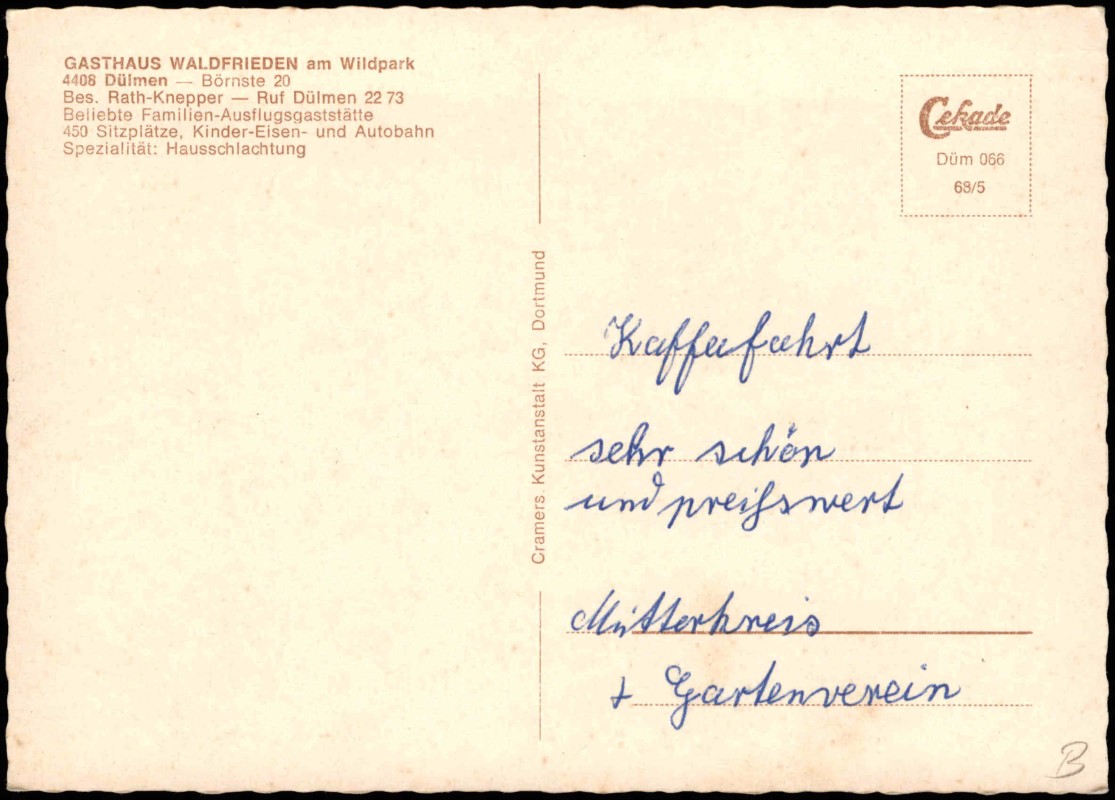 GASTHAUS WALDFRIEDEN am Wildpark
4408 Dülmen — Börnste 20
Bes. Rath-Knepper — Ruf Dülmen 22 73
Beliebte Familien-Ausflugsgaststätte
450 Sitzplätze, Kinder-Eisen- und Autobahn
Spezialität: Hausschlachtung
Cramers Kunstanstalt KG, Dortmund
Cekade
Düm 066
68/5
Kaffefahrt
sehr schön
und preißswert
Mütterkreis
+ Gartenverein
B